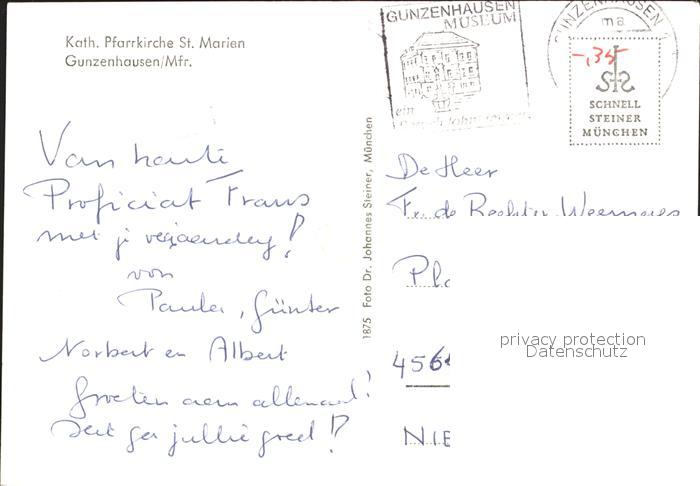 Kath. Pfarrkirche St. Marien
Gunzenhausen/Mfr.
GUNZENHAUSEN
MUSEUM
ein
GUNZENHAUSEN
ma
-,35
SCHNELL
STEINER
MÜNCHEN
1875 Foto Dr. Johannes Steiner, München
Van harte
Proficiat Frans
met je verjaardag!
von
Paula, Günter
Norbert en Albert
Groeten aan allemaal!
De Heer
Fr. de Rechter
Pl
456
NIE
privacy protection
Datenschutz